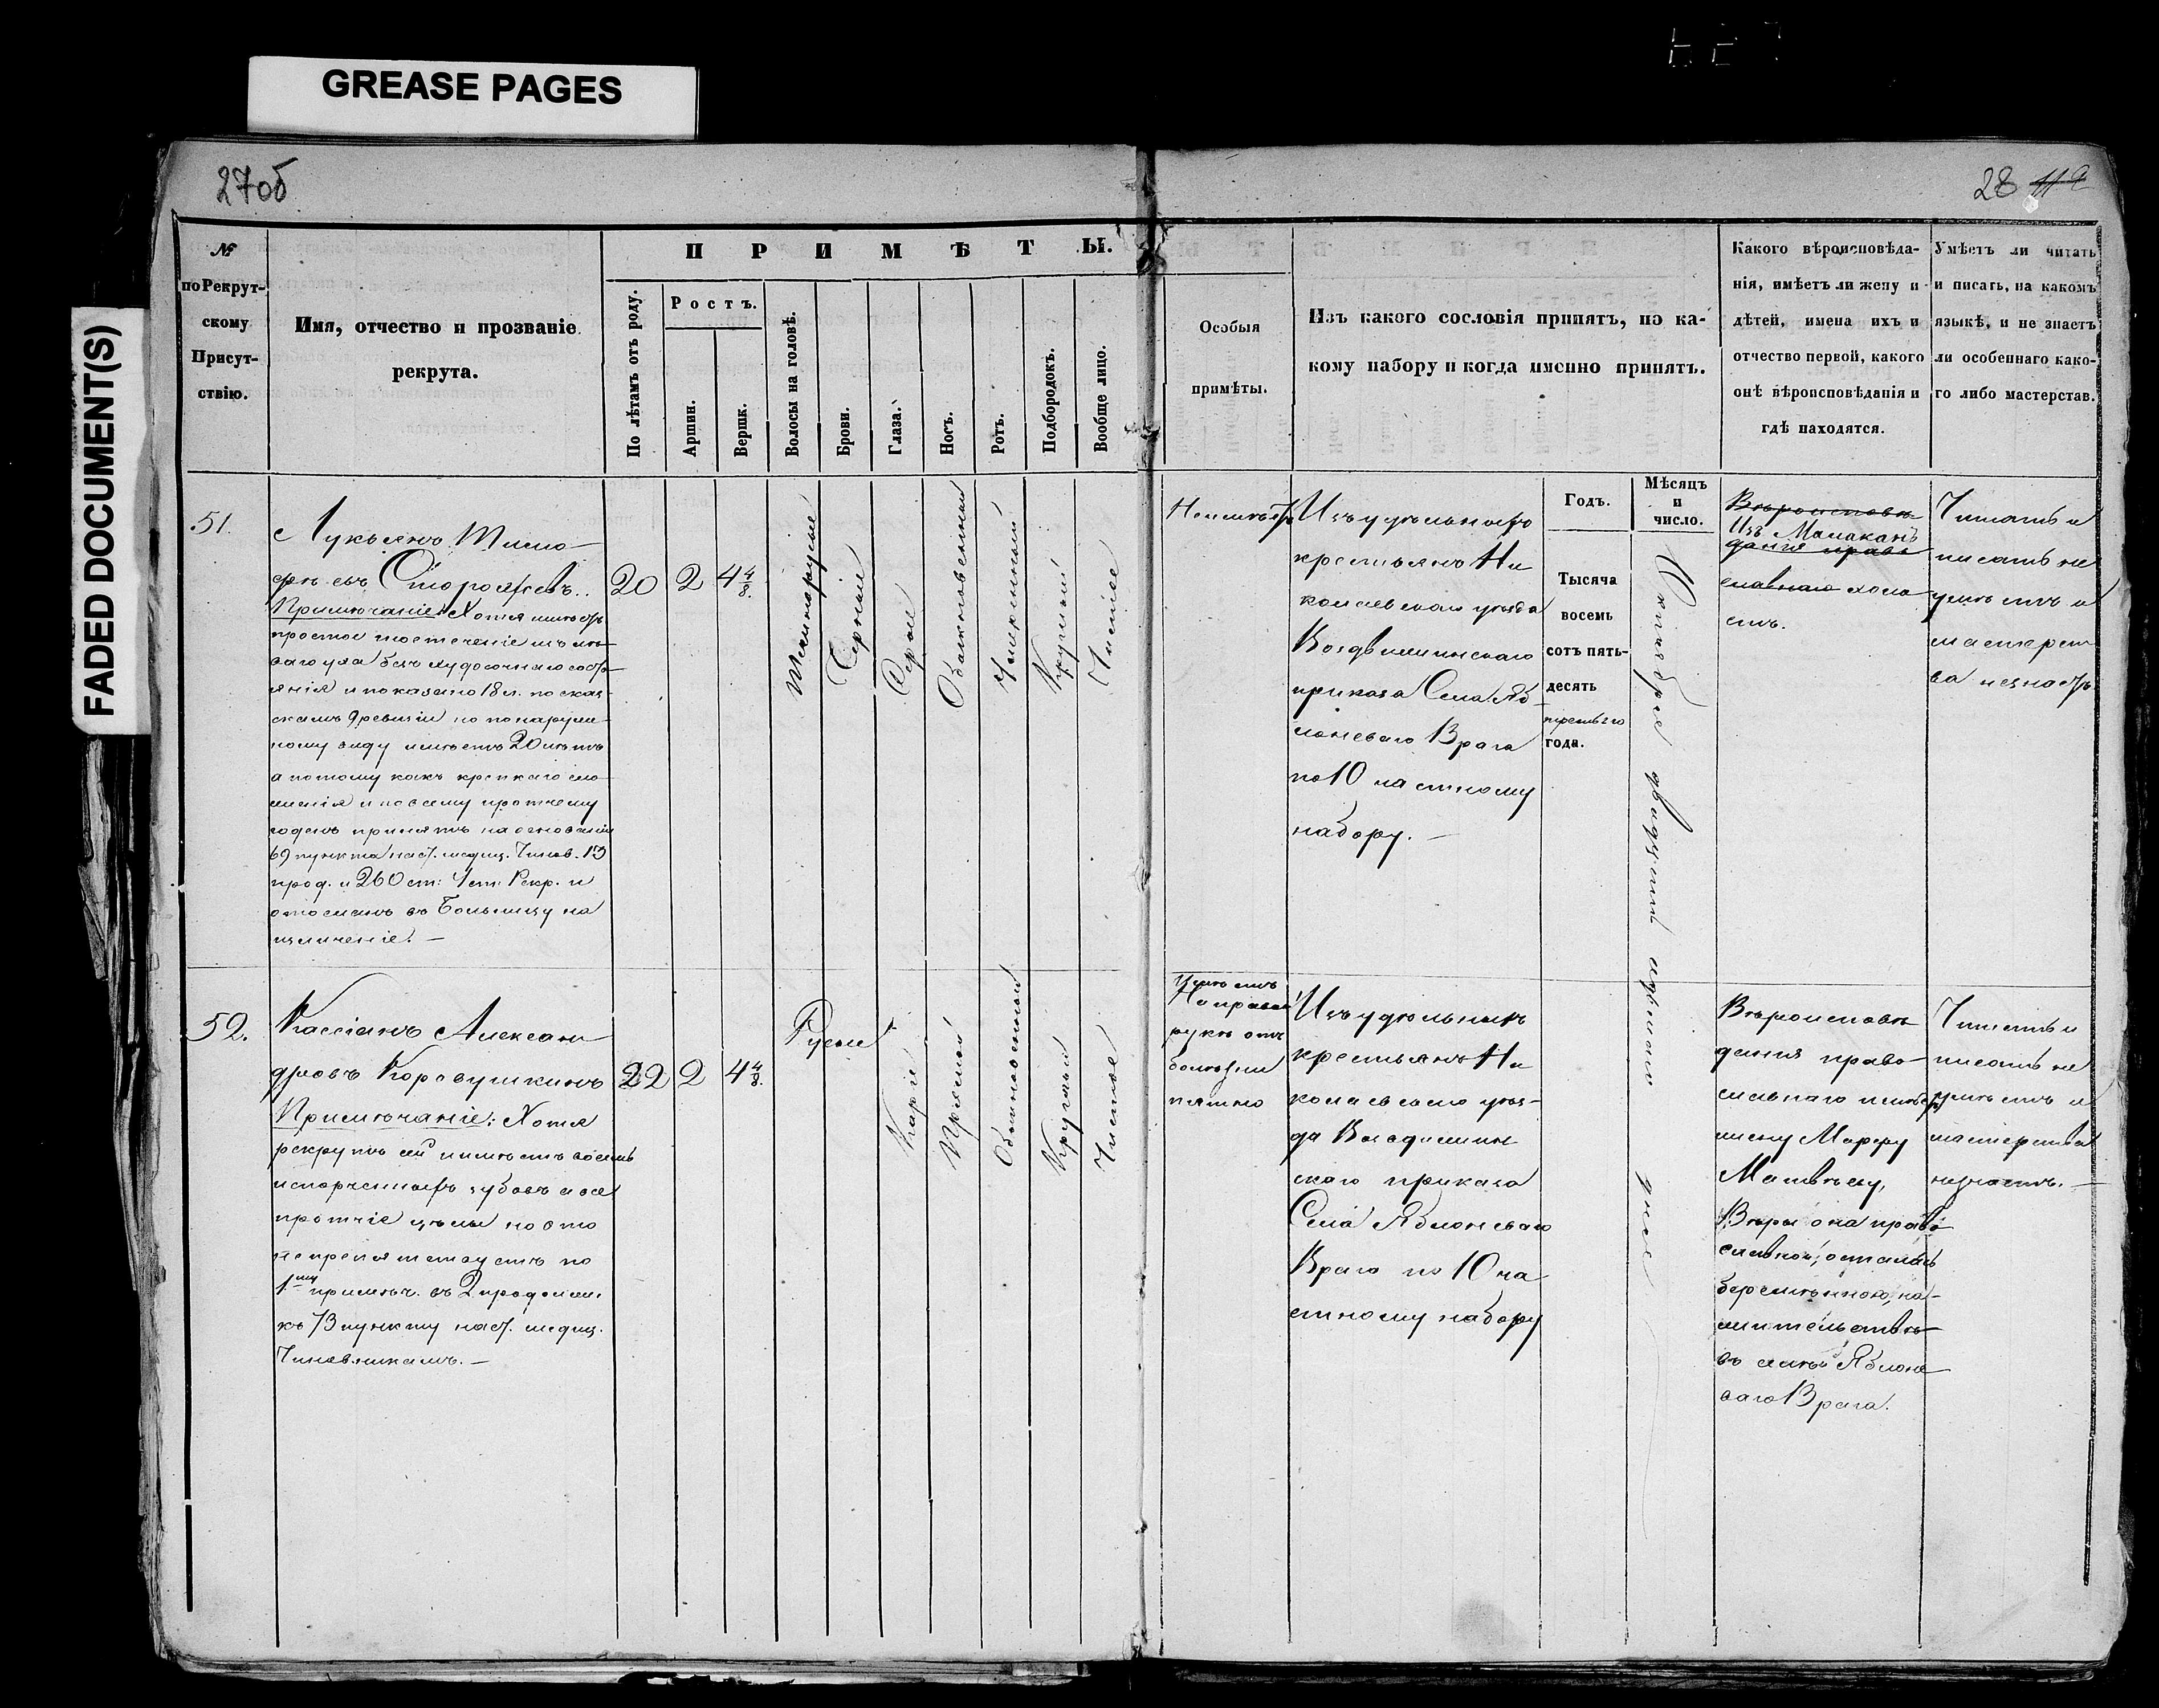 GREASE PAGES
FADED DOCUMENT(S)
27об
28 119
№
по Рекрут-
скому
Присут-
ствію.
Имя, отчество и прозваніе
рекрута.
ПРИМѢТЫ.
По лѣтамъ отъ роду.
Ростъ.
Аршин.
Вершк.
Волосы на головѣ.
Брови.
Глаза.
Носъ.
Ротъ.
Подбородокъ.
Вообще лицо.
Особыя
примѣты.
Изъ какого сословія принятъ, по ка-
кому набору и когда именно принятъ.
Какого вѣроисповѣда-
нія, имѣетъ ли жену и
дѣтей, имена ихъ и
отчество первой, какого
онѣ вѣроисповѣданія и
гдѣ находятся.
Умѣетъ ли читать
и писать, на какомъ
языкѣ, и не знаетъ
ли особеннаго како-
го либо мастерстав.
51.
Лукьянъ Тимо-
фѣевъ Сторожевъ.
Примѣчаніе: Хотя имѣетъ
простое теченіе изъ лѣ-
ваго уха безъ худосочнаго состо-
янія и показано 18 л. по сказ-
камъ 9 ревизіи но по наруж-
ному виду имѣетъ 20 лѣтъ
а потому какъ крепкаго сло-
женія и по всему протчему
годенъ принятъ на основаніи
69 пункта наст. медиц. Чинов. 13
прод. и 260 ст: Уст: Рекр. и
отосланъ въ Больницу на
изличеніе. —
20
2
4 4/8.
Темнорусые
Черные
Серые
Обыкновенный
Умеренный
Круглый
Чистое
Неимѣетъ
Изъ удѣльныхъ
крестьянъ Ни
колаевскаго уѣзда
Воздвиженскаго
приказа Села Яб-
лоневаго Врага
по 10 частному
набору. —
Годъ.
Тысяча
восемь
сотъ пять-
десять
третьяго
года.
Мѣсяцъ
и
число.
Октября двадцать дня
Вѣроисповѣ
Изъ Малаканъ
данія право
славнаго холо
стъ.
Читать и
писать не
умѣетъ и
мастерст
ва незнаетъ
52.
Кассіанъ Алексан
дровъ Коровушкинъ
Примѣчаніе: Хотя
рекрутъ сей имѣетъ восемь
испорченныхъ зубовъ а все
протчіе целы но это
непрепятствуетъ по
1му примѣч. въ 2 продолж.
къ 73 пункту наст. медиц.
Чиновникамъ. —
22
2
4 4/8.
Русые
Каріе
Прямой
Обыкновенный
Круглый
Чистое
Имѣетъ
На правой
рукѣ отъ
болѣзни
пятно
Изъ удѣльныхъ
крестьянъ Ни
колаевскаго уѣз-
да Воздвижен
скаго приказа
Села Яблоневаго
Врага по 10 ча
стному набору
Вѣроисповѣ
данія право-
славнаго имѣетъ
жену Марфу
Матвѣеву,
Вѣры она право
славной; осталась
беременною, на-
жительствѣ
въ селѣ Яблоне
ваго Врага.
Читать и
писать не
умѣетъ и
мастерства
незнаетъ. —